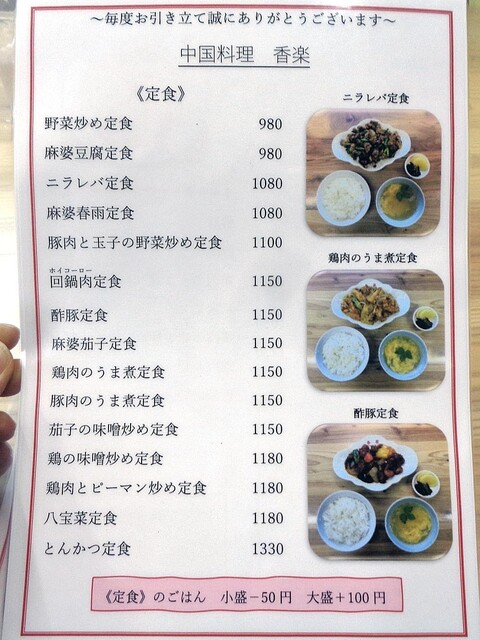 ～毎度お引き立て誠にありがとうございます～
中国料理　香楽
《定食》
野菜炒め定食　980
麻婆豆腐定食　980
ニラレバ定食　1080
麻婆春雨定食　1080
豚肉と玉子の野菜炒め定食　1100
ホイコーロー
回鍋肉定食　1150
酢豚定食　1150
麻婆茄子定食　1150
鶏肉のうま煮定食　1150
豚肉のうま煮定食　1150
茄子の味噌炒め定食　1150
鶏の味噌炒め定食　1180
鶏肉とピーマン炒め定食　1180
八宝菜定食　1180
とんかつ定食　1330
ニラレバ定食
鶏肉のうま煮定食
酢豚定食
《定食》のごはん　小盛－50円　大盛＋100円